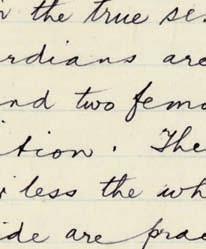 the true se
rdians are
and two fema
ition. The
less the wh
ide are prac